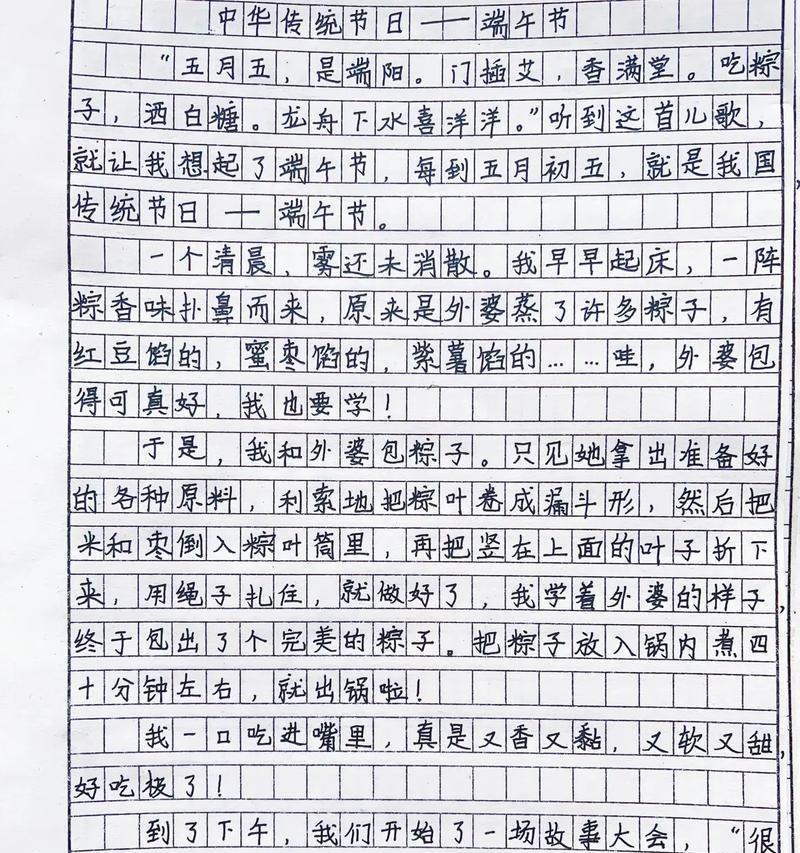 中华传统节日——端午节
“五月五，是端阳。门插艾，香满堂。吃粽
子，洒白糖。龙舟下水喜洋洋。”听到这首儿歌，
就让我想起了端午节，每到五月初五，就是我国
传统节日——端午节。
一个清晨，雾还未消散。我早早起床，一阵
粽香味扑鼻而来，原来是外婆蒸了许多粽子，有
红豆馅的，蜜枣馅的，紫薯馅的……哇，外婆包
得可真好，我也要学！
于是，我和外婆包粽子。只见她拿出准备好
的各种原料，利索地把粽叶卷成漏斗形，然后把
米和枣倒入粽叶筒里，再把竖在上面的叶子折下
来，用绳子扎住，就做好了，我学着外婆的样子，
终于包出了个完美的粽子。把粽子放入锅内煮四
十分钟左右，就出锅啦！
我一口吃进嘴里，真是又香又黏，又软又甜，
好吃极了！
到了下午，我们开始了一场故事大会，“很